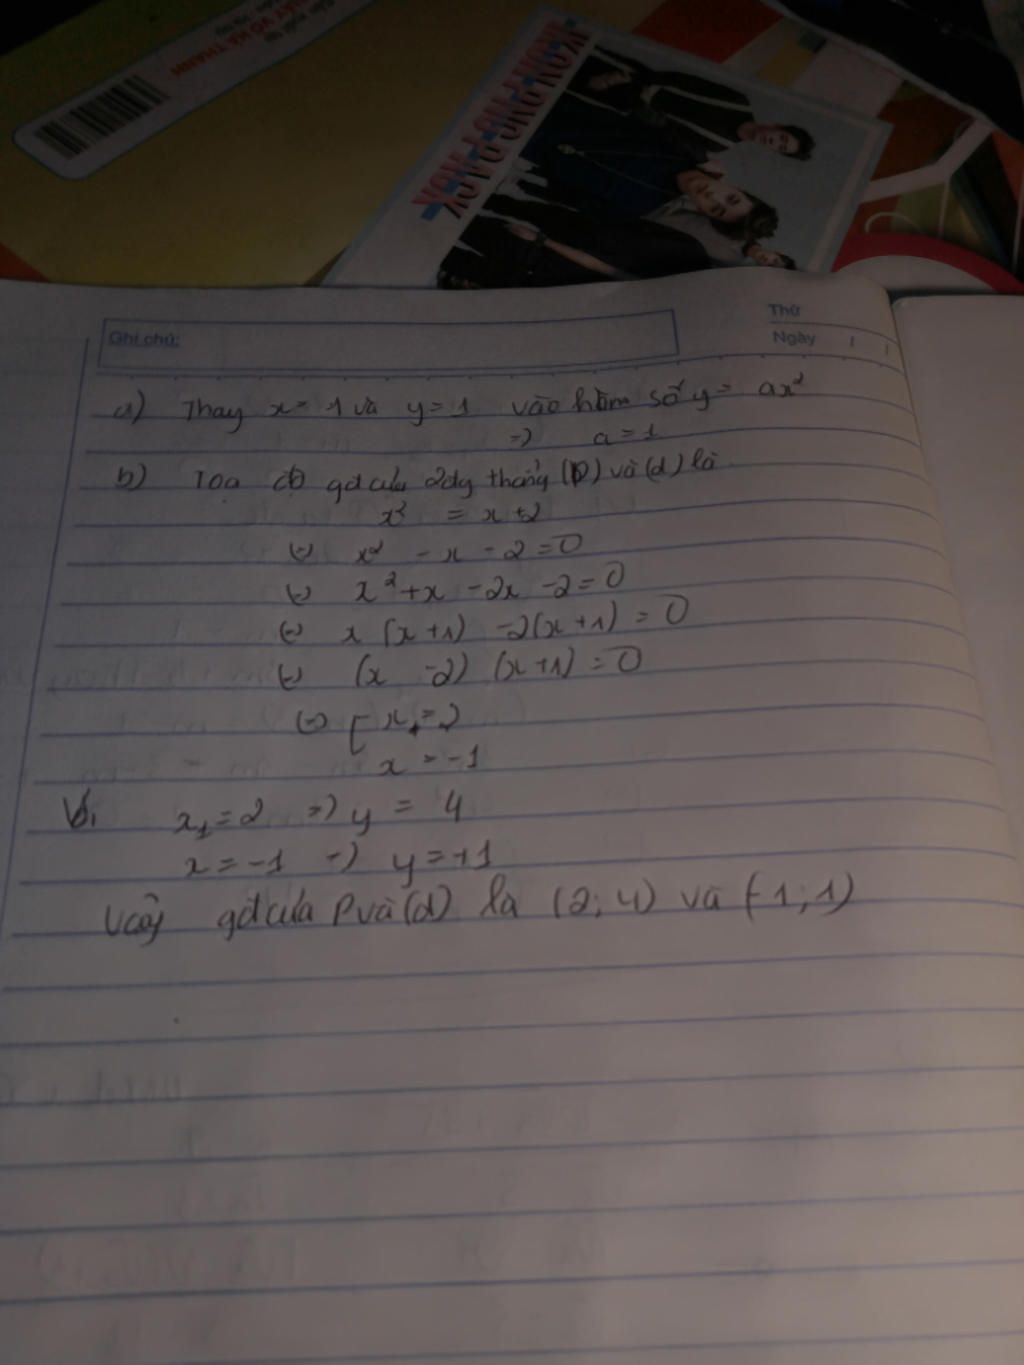 VÕ HÀ THANH
Ghi chú:
Thứ
Ngày / /
a) Thay x = 1 và y = 1 vào hàm số y = ax²
=> a = 1
b) Toạ độ gđ của 2 dg thẳng (P) và (d) là
x² = x + 2
(=) x² - x - 2 = 0
(=) x² + x - 2x - 2 = 0
(=) x (x + 1) - 2(x + 1) = 0
(=) (x - 2) (x + 1) = 0
(=) [ x₁ = 2
x = -1
Với x₁ = 2 => y = 4
x = -1 => y = +1
Vậy gđ của P và (d) là (2; 4) và (-1; 1)